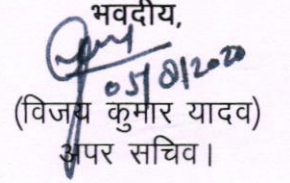 भवदीय,
05/8/2020
(विजय कुमार यादव)
अपर सचिव।